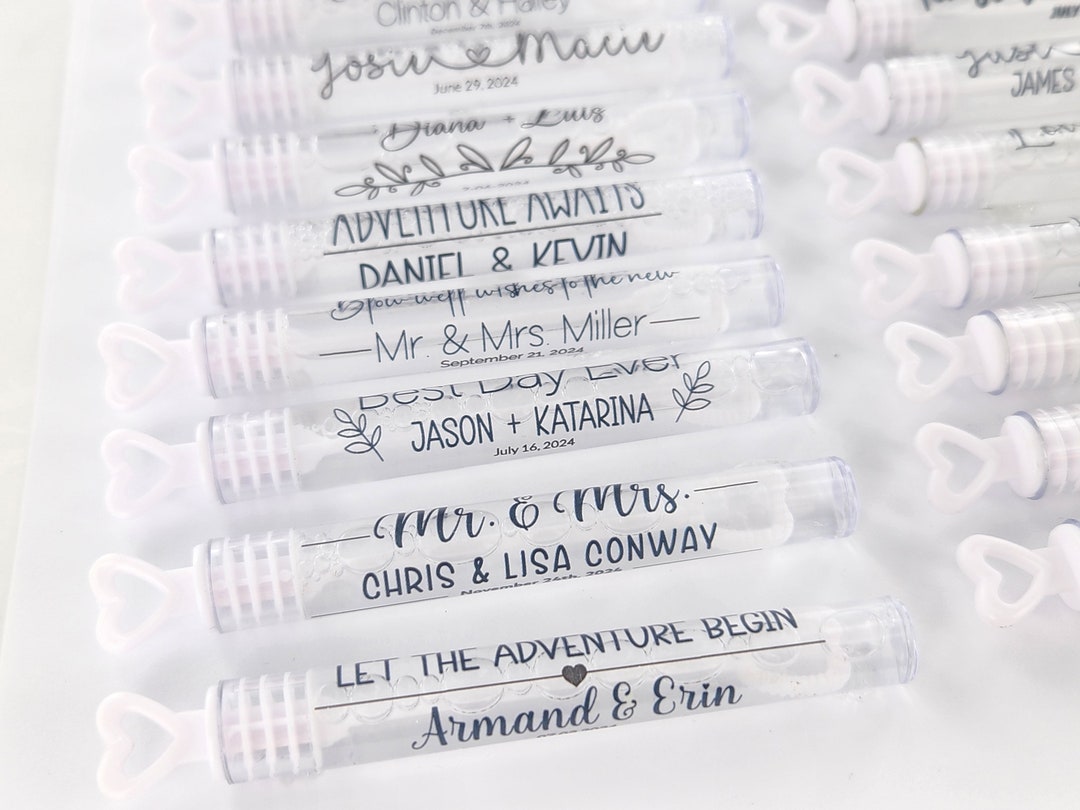 Clinton & Haley
Josie Macie
June 29, 2024
Diana + Luis
ADVENTURE AWAITS
DANIEL & KEVIN
Blow well wishes to the new
Mr. & Mrs. Miller
September 21, 2024
Best Day Ever
JASON + KATARINA
July 16, 2024
Mr. & Mrs.
CHRIS & LISA CONWAY
LET THE ADVENTURE BEGIN
Armand & Erin
JULY
JAMES